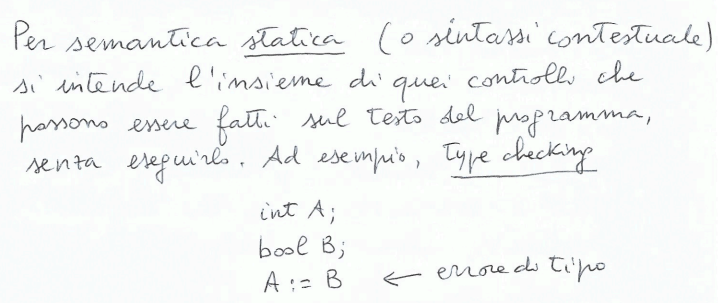 Per semantica statica (o sintassi contestuale)
si intende l'insieme di quei controlli che
possono essere fatti sul testo del programma,
senza eseguirlo. Ad esempio, type checking
int A;
bool B;
A := B ← errore di tipo